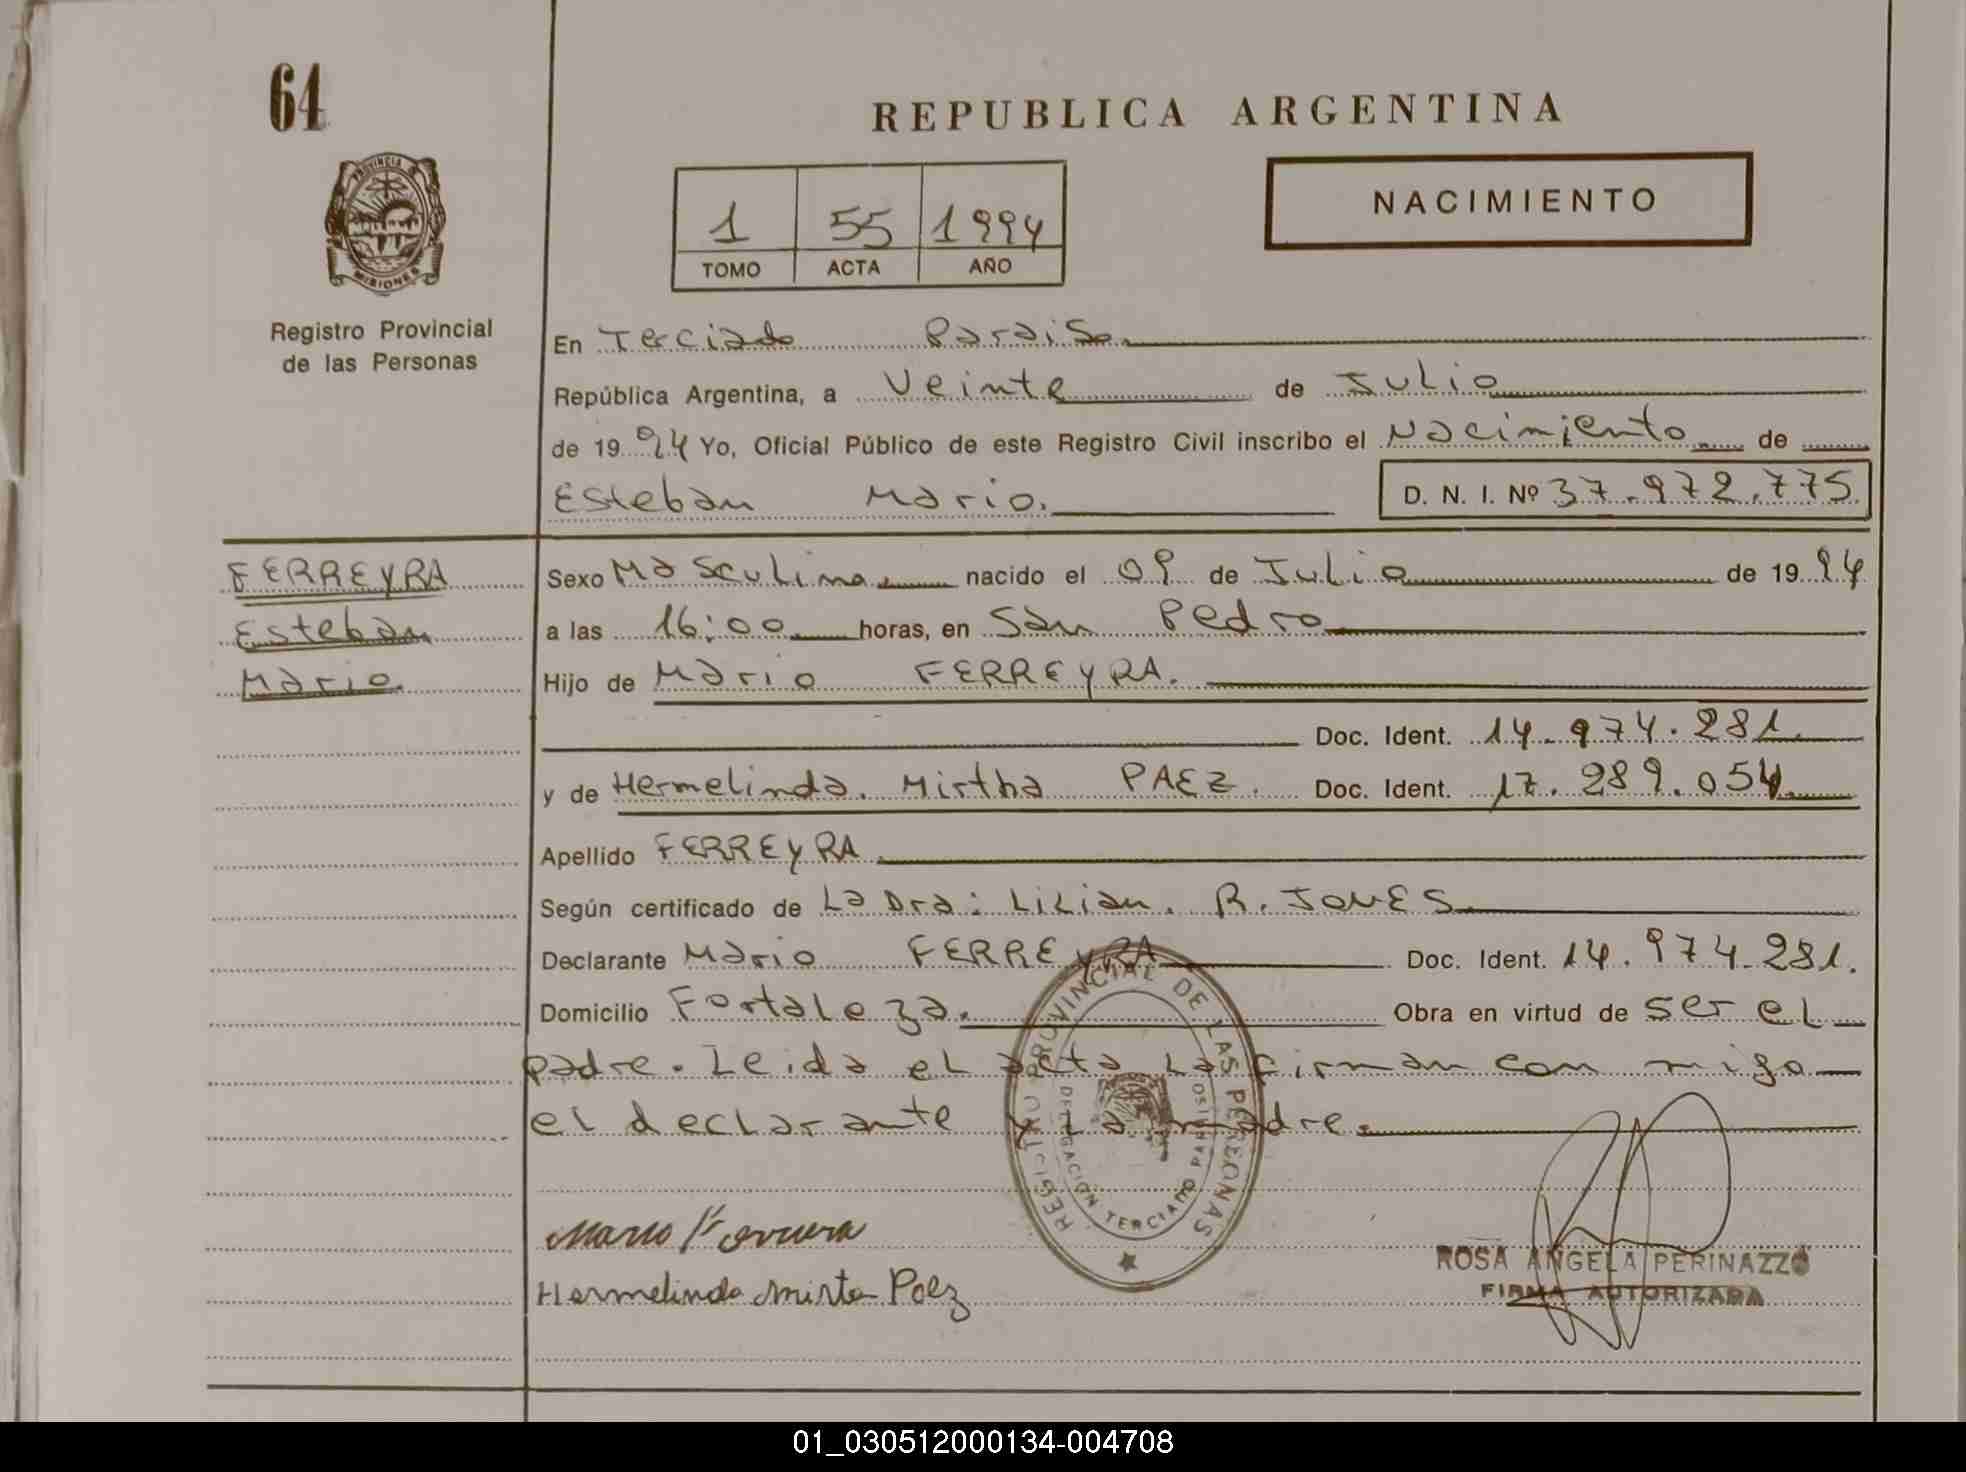 64
REPUBLICA ARGENTINA
PROVINCIA DE
MISIONES
NACIMIENTO
1 55 1994
TOMO ACTA AÑO
Registro Provincial
de las Personas
En Terciado Paraiso.
República Argentina, a Veinte de Julio
de 1994 Yo, Oficial Público de este Registro Civil inscribo el Nacimiento de
Esteban Mario. D. N. I. Nº 37.972.775
FERREYRA
Esteban
Mario.
Sexo Masculino nacido el 09 de Julio de 1994
a las 16:00 horas, en San Pedro
Hijo de Mario FERREYRA.
Doc. Ident. 14.974.281.
y de Hermelinda. Mirtha PAEZ. Doc. Ident. 17.289.054.
Apellido FERREYRA
Según certificado de La Dra: Lilian. R. JONES
Declarante Mario FERREYRA Doc. Ident. 14.974.281.
Domicilio Fortaleza. Obra en virtud de ser el
padre. Leida el acta la firman con migo
el declarante y la madre.
REGISTRO PROVINCIAL DE LAS PERSONAS
DELEGACION TERCIADO PARAISO
Mario Ferreira
Hermelinda Mirta Paez
ROSA ANGELA PERINAZZO
FIRMA AUTORIZADA
01_030512000134-004708